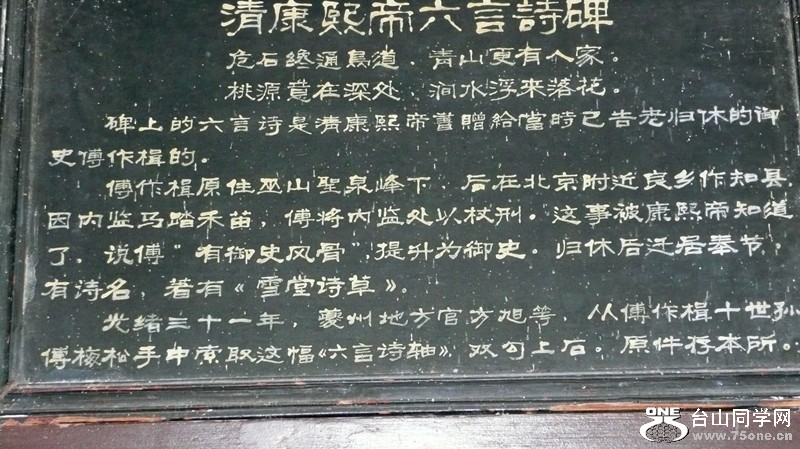 清康熙帝六言詩碑
危石终通鳥道、青山更有人家。
桃源意在深处、涧水浮来落花。
碑上的六言诗是清康熙帝書贈給當時已告老归休的御
史傅作楫的。
傅作楫原住巫山聖泉峰下、后在北京附近良乡作知县,
因内监马踏禾苗，傅将内监处以杖刑。这事被康熙帝知道
了，说傅"有御史风骨"提升为御史。归休后迁居奉节，
有诗名，著有《雪堂诗草》。
光绪三十一年，夔州地方官方旭等，从傅作楫十世孙
傅楼松手中索取这幅《六言诗轴》，双勾上石。原件存本所。
ONE 台山同学网
www.75one.cn